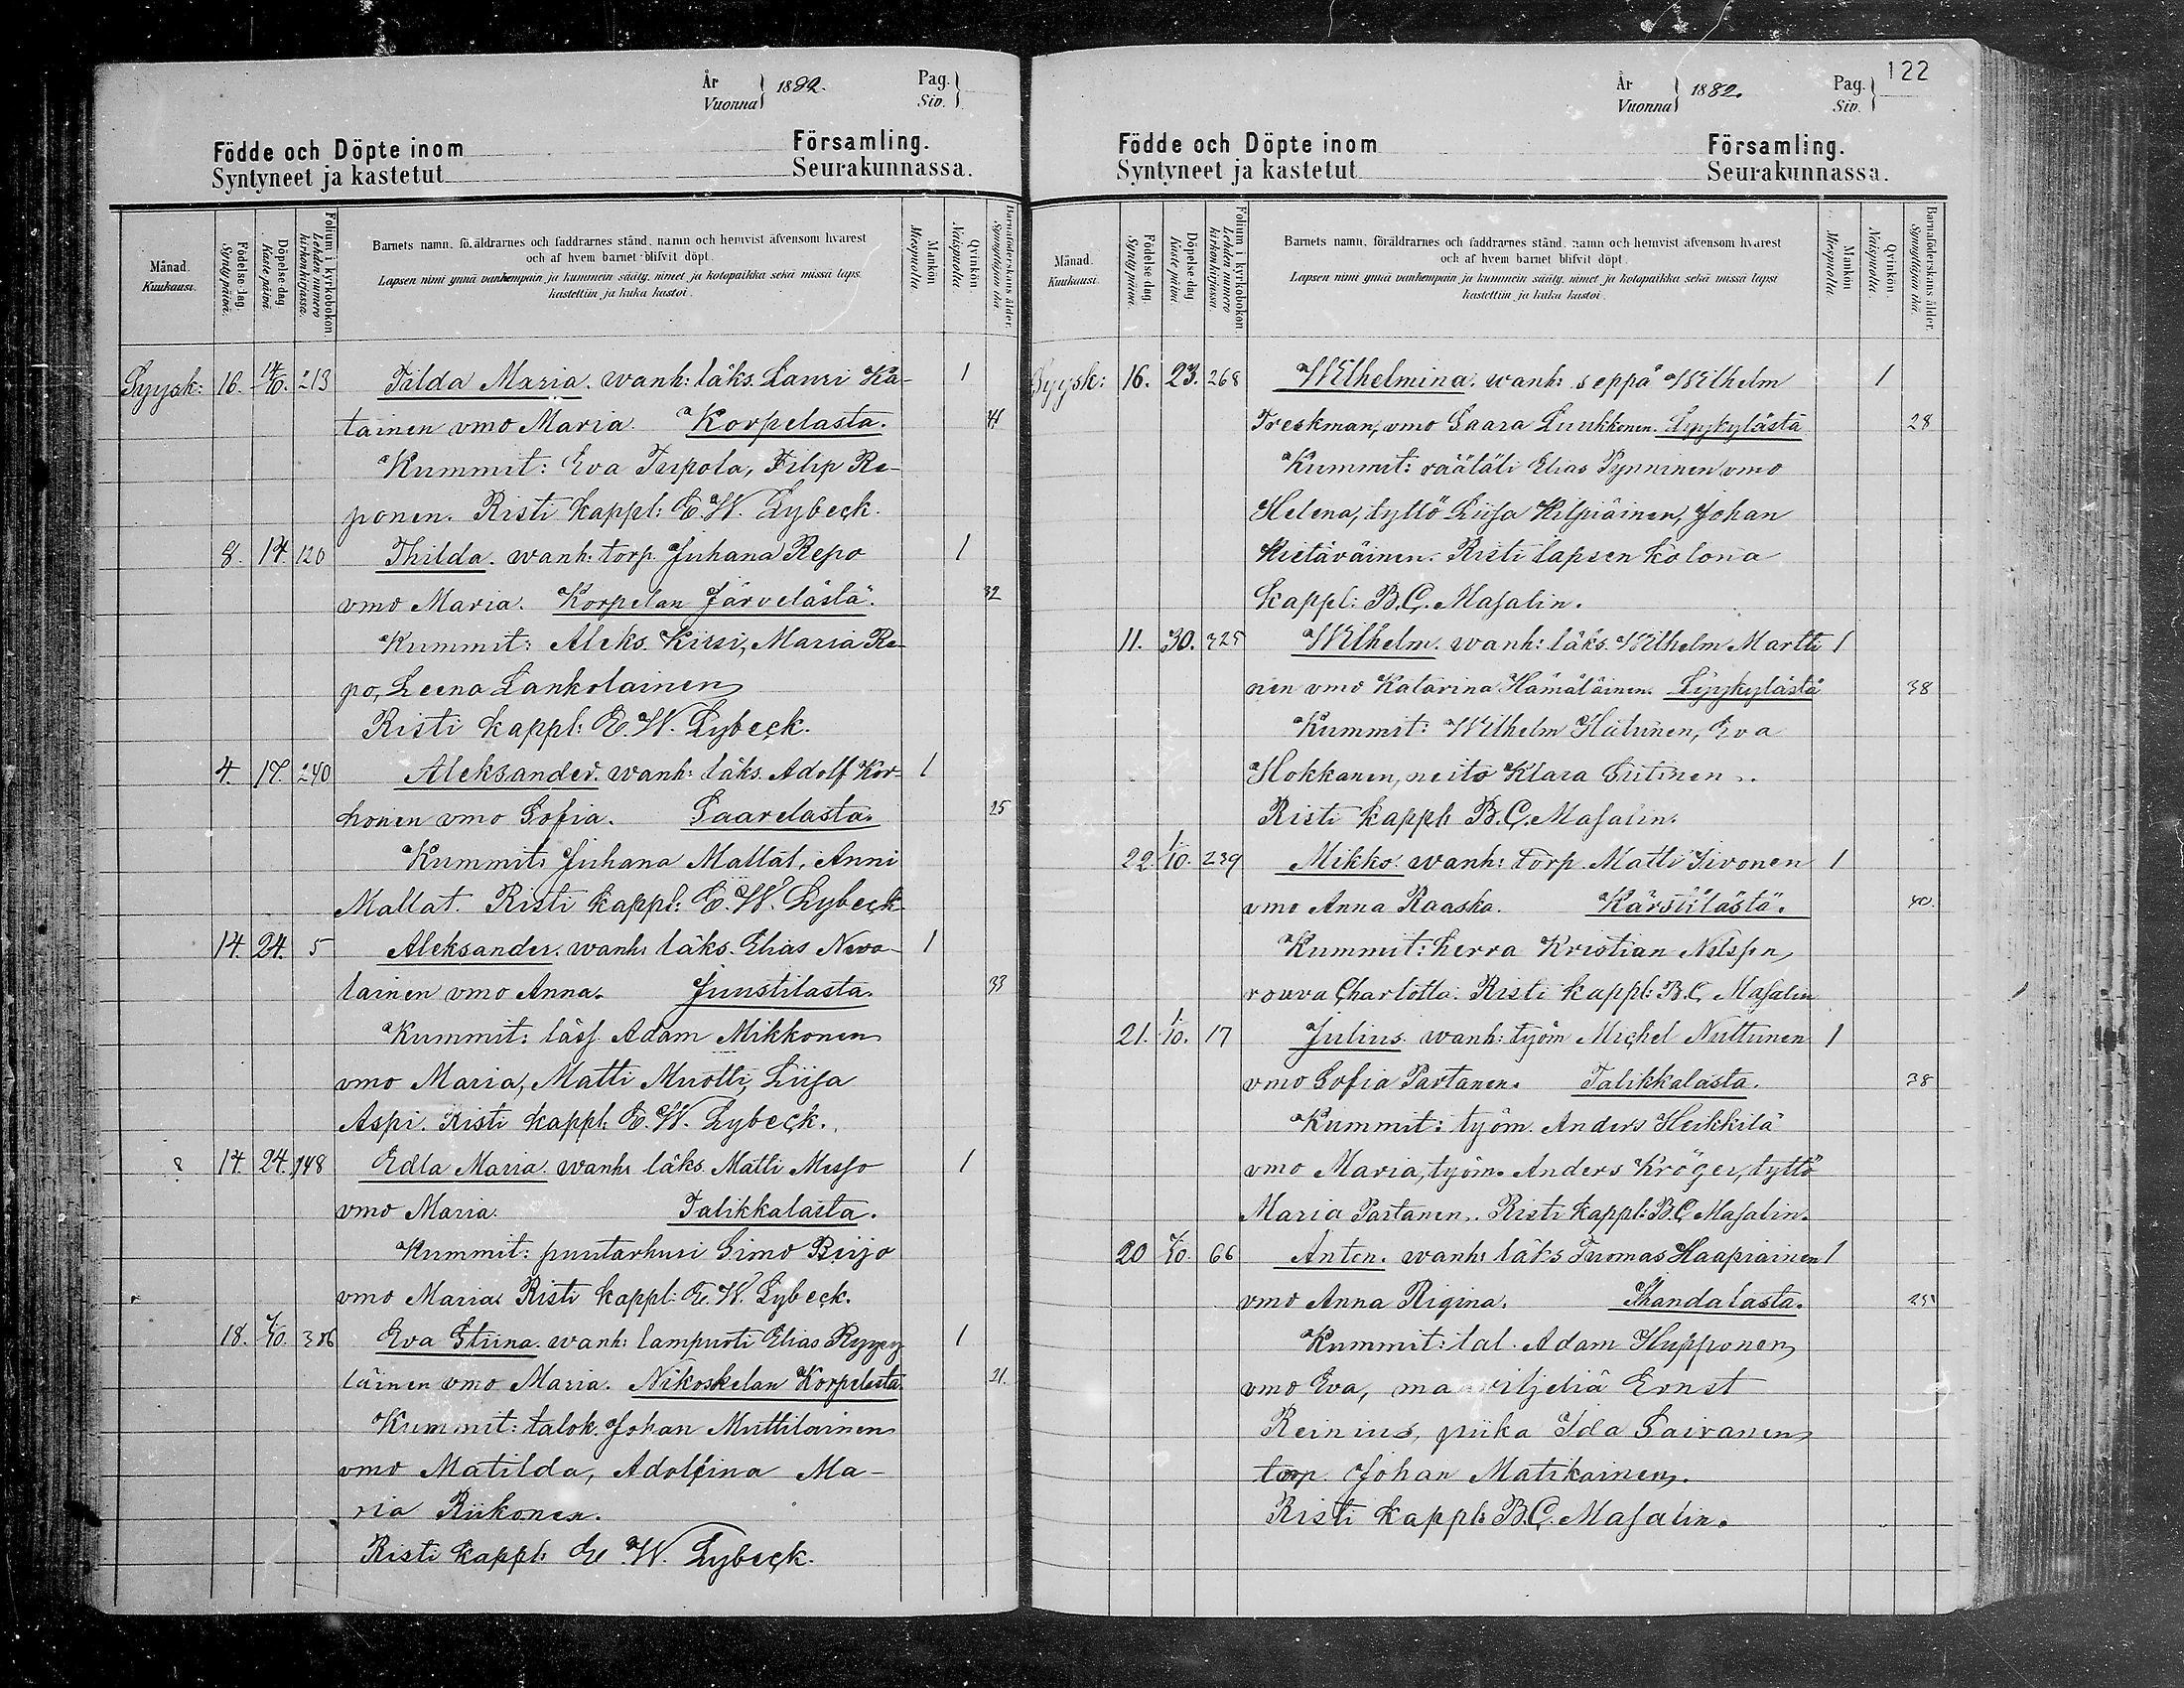 År
Vuonna } 1882. Pag.
Siv. }
Födde och Döpte inom Församling.
Syntyneet ja kastetut Seurakunnassa.
Månad.
Kuukausi.
Födelse-dag.
Synty-päivä.
Döpelse-dag
Kaste-päivä
Folium i kyrkoboken.
Lehden numero
kirkonkirjassa.
Barnets namn, föräldrarnes och faddrarnes stånd, namn och hemvist äfvensom hvarest
och af hvem barnet blifvit döpt.
Lapsen nimi ynnä vanhempain ja kummein sääty, nimet ja kotopaikka sekä missä laps.
kastettiin ja kuka kastoi.
Mankön
Miespuolia
Qvinkön
Naispuolia
Barnaföderskans ålder.
Synnyttäjän ikä.
Syysk: 16. 213 Tilda Maria. wanh: läks. Lauri Ka- 1
tainen vmo Maria. Korpelasta. 41
Kummit: Eva Tupola, Filip Re-
ponen. Risti kappl: E. W. Lybeck.
8. 17. 120 Thilda. wanh: torp. Juhana Repo 1
vmo Maria. Korpelan Järvelästä. 32
Kummit: Aleks. Kirsi, Maria Re-
po, Leena Lankolainen
Risti kappl: E. W. Lybeck.
4. 17. 240 Aleksander. wanh: läks. Adolf Kor- 1
honen vmo Sofia. Saarelasta. 25
Kummit: Juhana Mallat, Anni
Mallat. Risti kappl: E. W. Lybeck
14. 24. 5 Aleksander. wanh: läks. Elias Nevo- 1
lainen vmo Anna. Juustilasta. 33
Kummit: läks. Adam Mikkonen
vmo Maria, Matti Muotti, Liisa
Aspi. Risti kappl: E. W. Lybeck.
14. 24. 148 Edla Maria. wanh: läks. Matti Messo 1
vmo Maria. Talikkalasta.
Kummit: puutarhuri Simo Reijo
vmo Maria. Risti kappl: E. W. Lybeck.
18. Eva Stiina. wanh: lampuoti Elias Ryyny 1
läinen vmo Maria. Nikoskelan Korpelasta. 21.
Kummit: talok. Johan Muttilainen
vmo Matilda, Adolfina Ma-
ria Riikonen.
Risti kappl: E. W. Lybeck.
122
År
Vuonna } 1882. Pag.
Siv. }
Födde och Döpte inom Församling.
Syntyneet ja kastetut Seurakunnassa.
Månad.
Kuukausi.
Födelse-dag.
Synty-päivä.
Döpelse-dag
Kaste-päivä.
Folium i kyrkoboken.
Lehden numero
kirkonkirjassa.
Barnets namn, föräldrarnes och faddrarnes stånd, namn och hemvist äfvensom hvarest
och af hvem barnet blifvit döpt.
Lapsen nimi ynnä vanhempain ja kummein sääty, nimet ja kotopaikka sekä missä lapsi
kastettiin ja kuka kastoi.
Mankön
Miespuolia
Qvinkön.
Naispuolia.
Barnaföderskans ålder.
Synnyttäjän ikä.
Syysk: 16. 23. 268 Wilhelmina. wanh: seppä Wilhelm 1
Treskman, vmo Saara Luukkonen. Lyykylästä 28
Kummit: räätäli Elias Pynninen vmo
Helena, tyttö Liisa Hilpiäinen, Johan
Hietäväinen. Risti lapsen kotona
kappl: B. C. Masalin.
11. 30. 325 Wilhelm. wanh: läks. Wilhelm Martti 1
nen vmo Katarina Hämäläinen. Lyykylästä 38
Kummit: Wilhelm Hätinen, Eva
Hokkanen, neito Klara Sutinen.
Risti kappl: B. C. Masalin.
22. 1/10. 239 Mikko. wanh: torp. Matti Sivonen 1
vmo Anna Raaska. Kärstilästä. 40.
Kummit: herra Kristian Nilsson,
rouva Charlotta. Risti kappl: B. C. Masalin
21. 1/10. 17 Julius. wanh: työm. Michel Nuttunen 1
vmo Sofia Partanen. Talikkalasta. 38
Kummit: työm. Anders Heikkilä
vmo Maria, työm. Anders Kröger, tyttö
Maria Partanen. Risti kappl: B. C. Masalin.
20 66 Anton. wanh: läks Tuomas Haapiainen 1
vmo Anna Rigina.
Kummit: tal. Adam Hupponen,
vmo Eva, maanviljeliä Ernst
Reinius, piika Ida Sairanen,
torp. Johan Matikainen.
Risti kappl: B. C. Masalin.